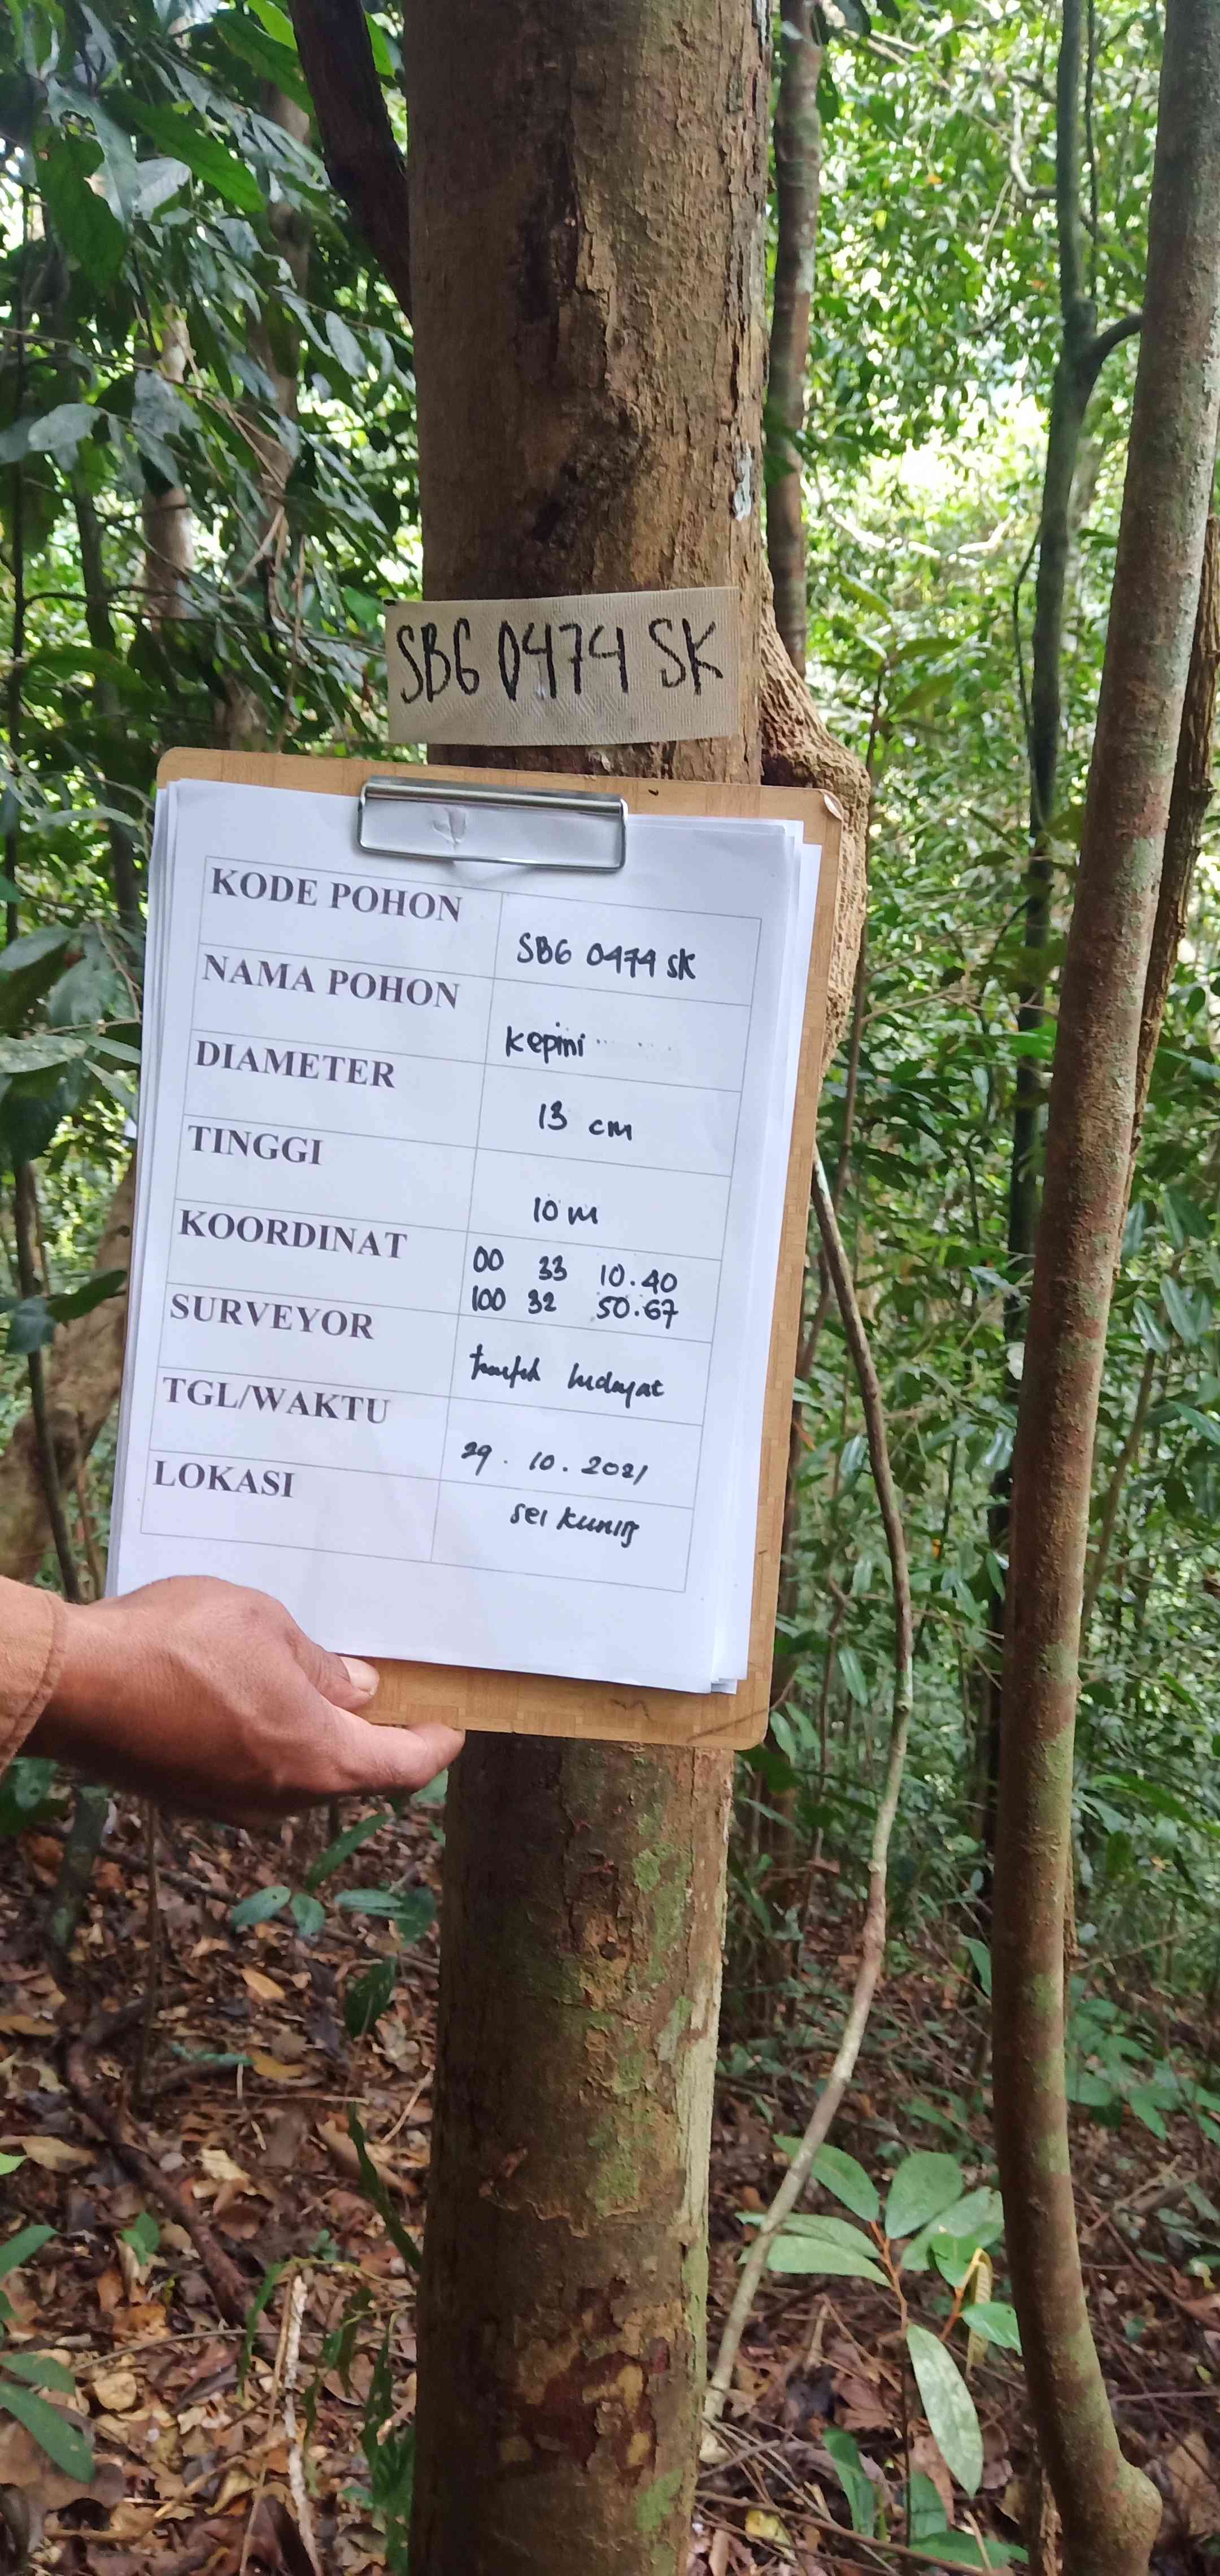 SBG 0474 SK
KODE POHON SBG 0474 SK
NAMA POHON Kepini
DIAMETER 13 cm
TINGGI 10 m
KOORDINAT 00 33 10.40
100 32 50.67
SURVEYOR hidayat
TGL/WAKTU 29. 10. 2021
LOKASI Sei Kuning